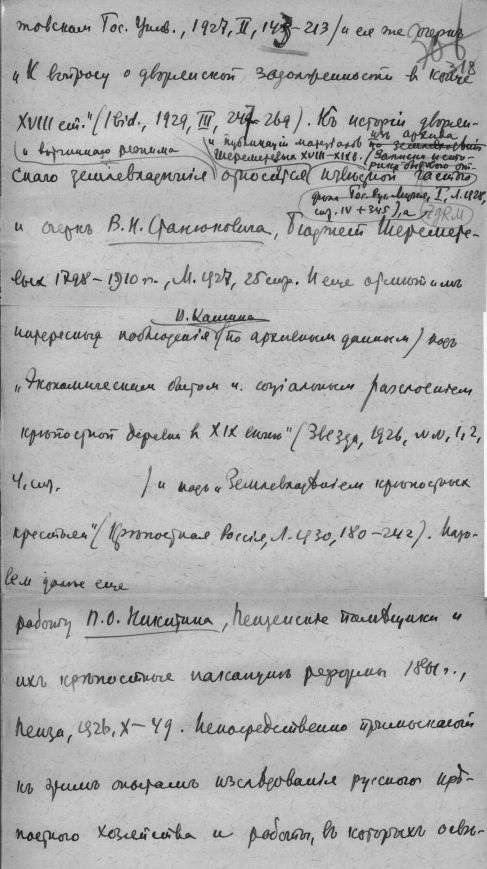 товском Гос. Унив., 1927, II, 143-213) и ея же очеркъ
18
„К вопросу о дворянской задолженности в конце
XVIII ст.“ (Ibid., 1929, III, 247-269). Къ исторіи дворян-
и вотчиннаго режима
и публикація матеріалов изъ архива
Шереметевых XVIII-XIX в. (Записки исто-
скаго землевладѣнія относится извѣстной частью
Гос. Рус. Музея, I, Л. 1928,
стр. IV + 345), а
и очеркъ В. К. Станюковича, Бюджет Шеремете-
вых 1798-1910 гг., М. 1927, 25 стр. И еще отмѣтимъ
В. Кашина
интересныя наблюденія (по архивным данным) надъ
„Экономическим бытом и соціальным разслоеніем
крѣпостной деревни в XIX вѣкѣ“ (Звезда, 1926, №№ 1, 2,
4, стр. ) и надъ „Землевладѣніем крѣпостных
крестьян“ (Крѣпостная Россія, Л. 1930, 180-242). Назо-
вем далѣе еще
работу П. О. Никитина, Пензенскіе помѣщики и
ихъ крѣпостные наканунѣ реформы 1861 г.,
Пенза, 1926, X-49. Непосредственно примыкают
къ этимъ опытамъ изслѣдованія русского крѣ-
постного хозяйства и работы, въ которыхъ освѣ-